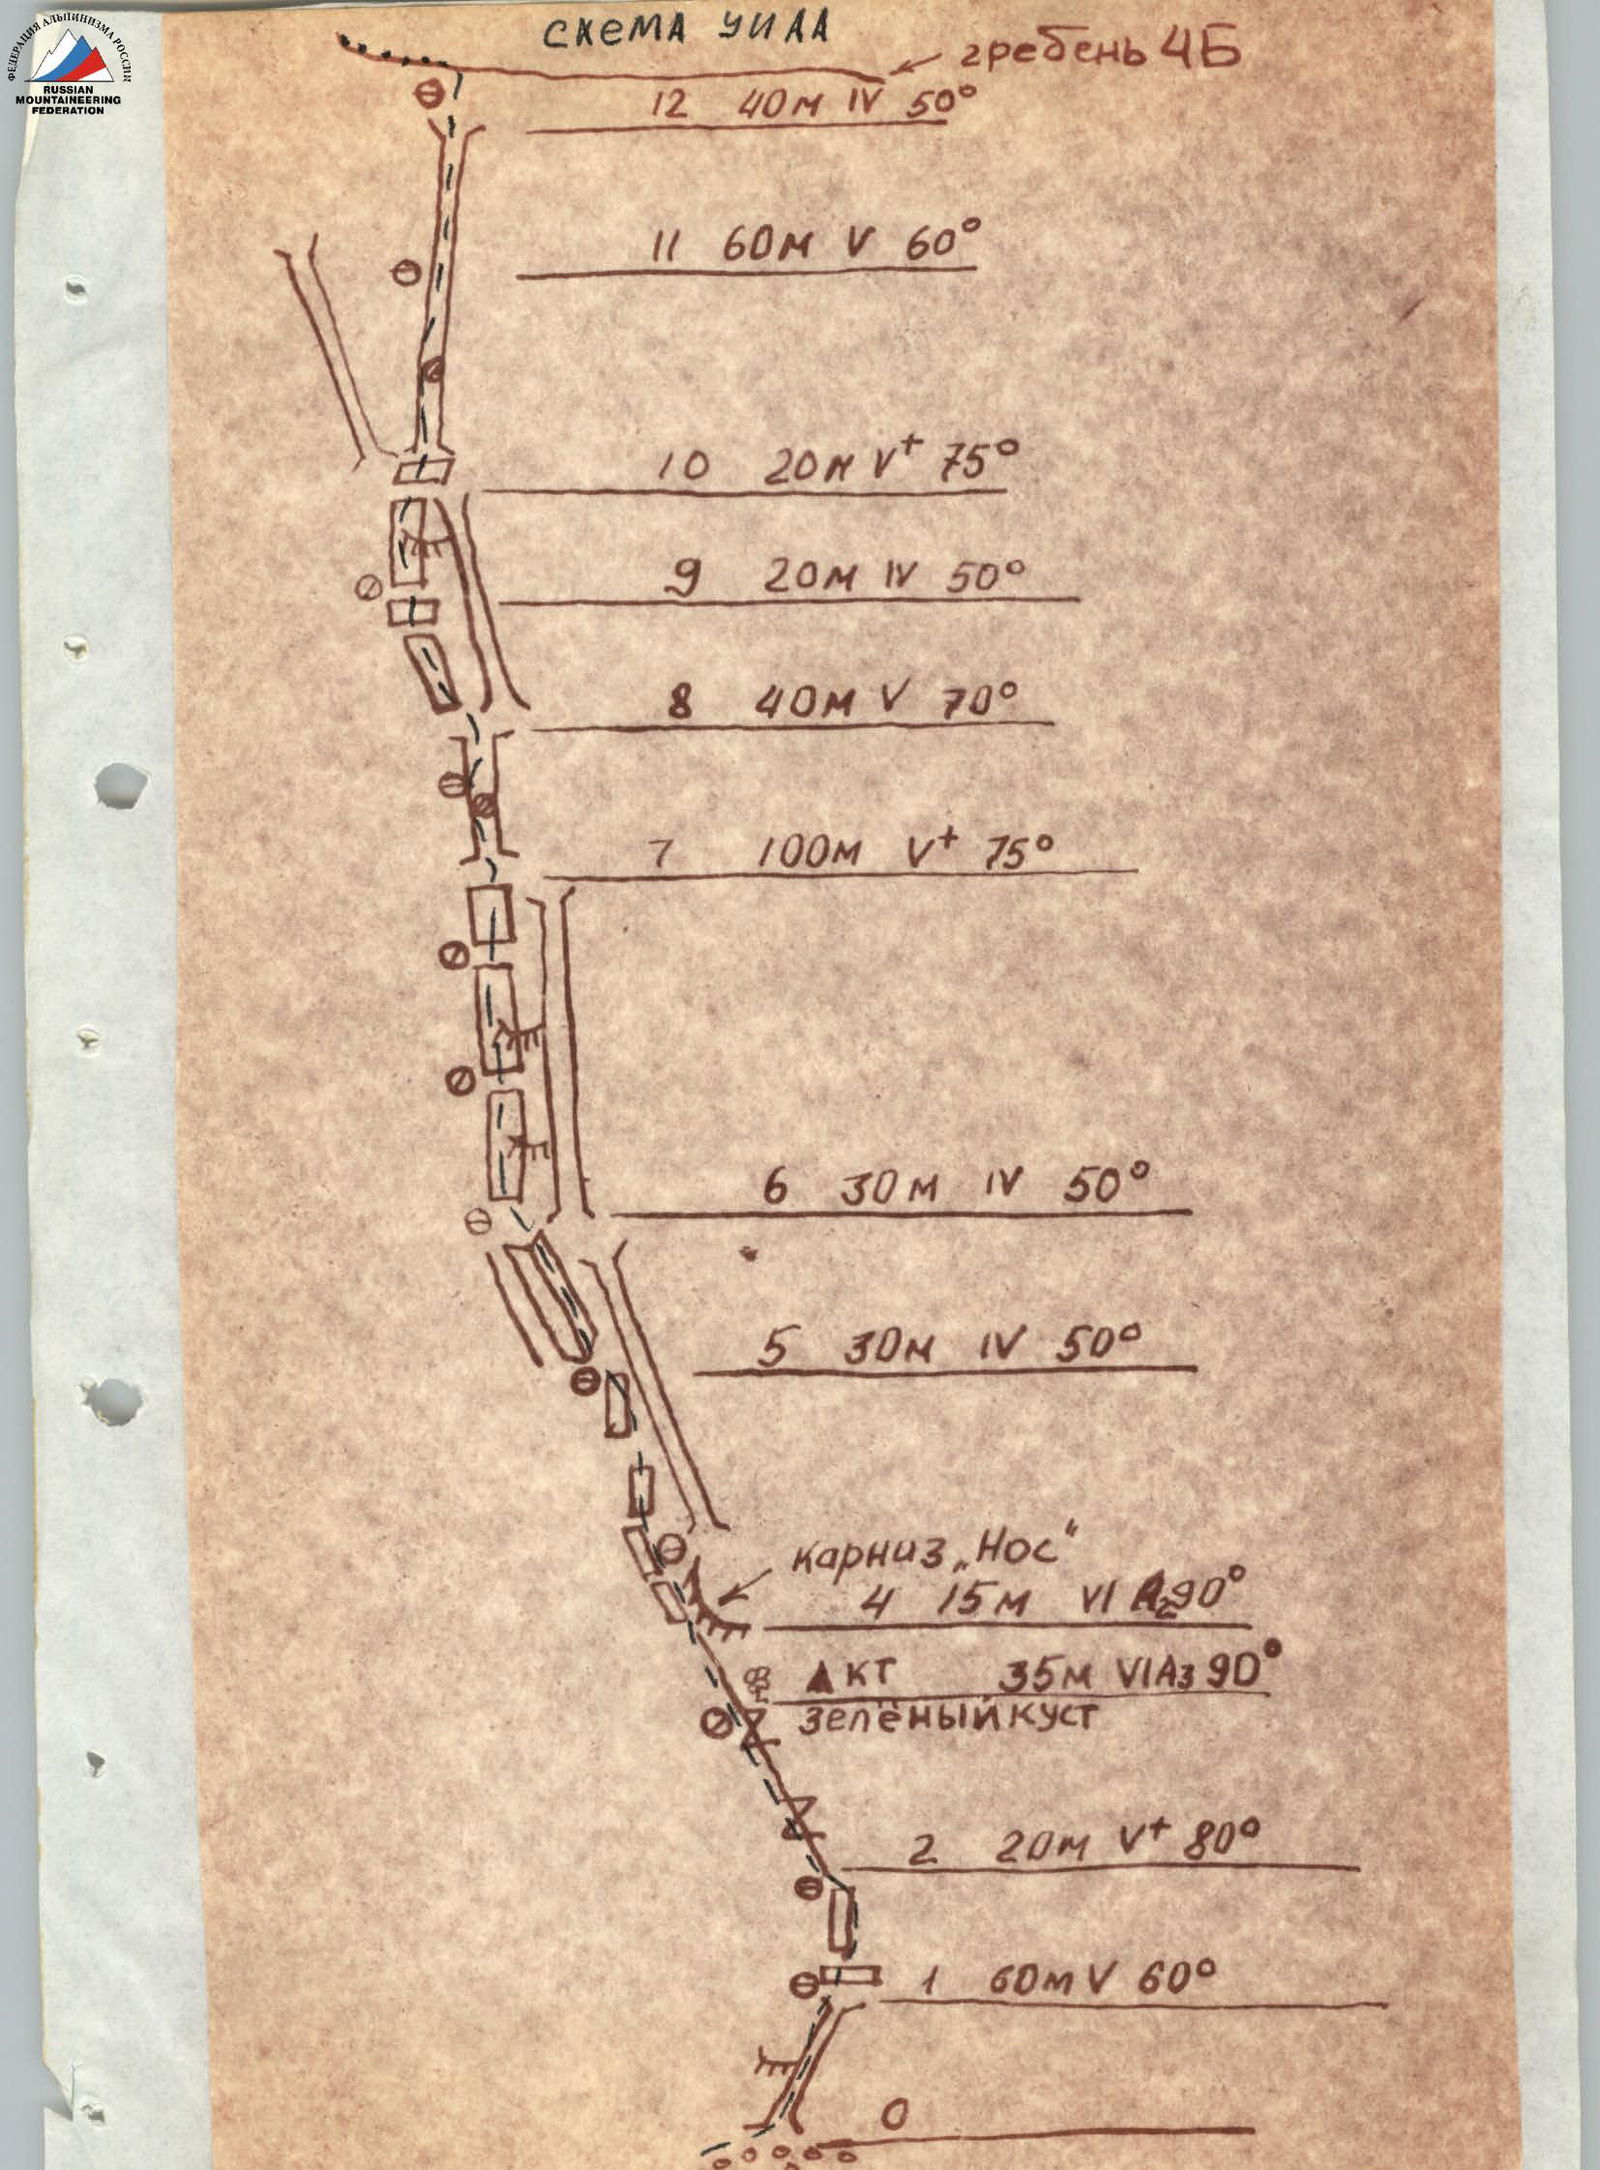 ФЕДЕРАЦИЯ АЛЬПИНИЗМА РОССИИ
RUSSIAN
MOUNTAINEERING
FEDERATION
СХЕМА УИАА
гребень 4Б
12 40м IV 50°
11 60м V 60°
10 20м V+ 75°
9 20м IV 50°
8 40м V 70°
7 100м V+ 75°
6 30м IV 50°
5 30м IV 50°
карниз „Нос“
4 15м VI A2 90°
▲ КТ 35м VI A3 90°
зелёный куст
2 20м V+ 80°
1 60м V 60°
0